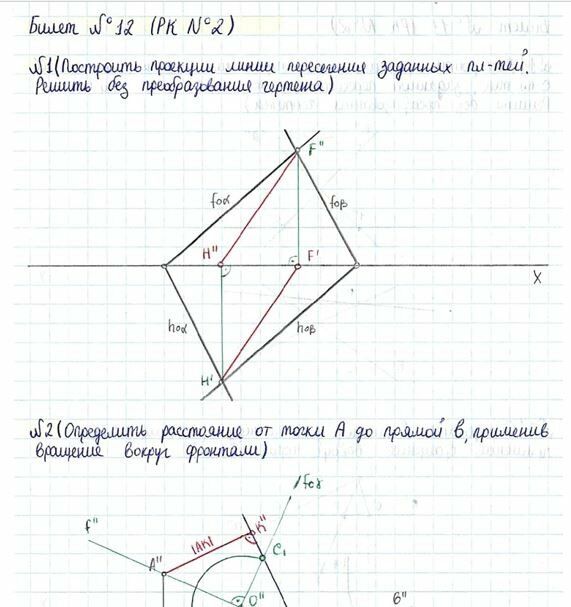 Билет №12 (РК №2)
№1(Построить проекции линии пересечения заданных пл-тей.
Решить без преобразования чертежа)
F"
f₀α
f₀β
H"
F'
X
h₀α
h₀β
H'
№2(Определить расстояние от точки A до прямой b, применив
вращение вокруг фронтали)
f₀γ
f"
K"
|AK|
C₁
A"
O"
б"